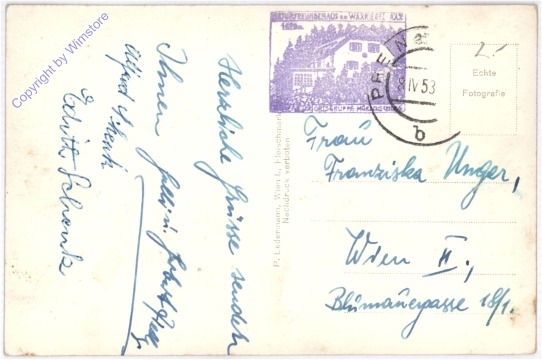 Copyright by Wimstore
Herzliche Grüsse senden
Ihnen
Alfred Schenk
Edith Schenk
P. Ledermann, Wien I., Fleischmarkt
Nachdruck verboten
NATURFREUNDEHAUS am WAXRIEGEL RAX
IV 53
b
Echte
Fotografie
Frau
Franziska Unger,
Wien II.,
Blumauergasse 18/1.